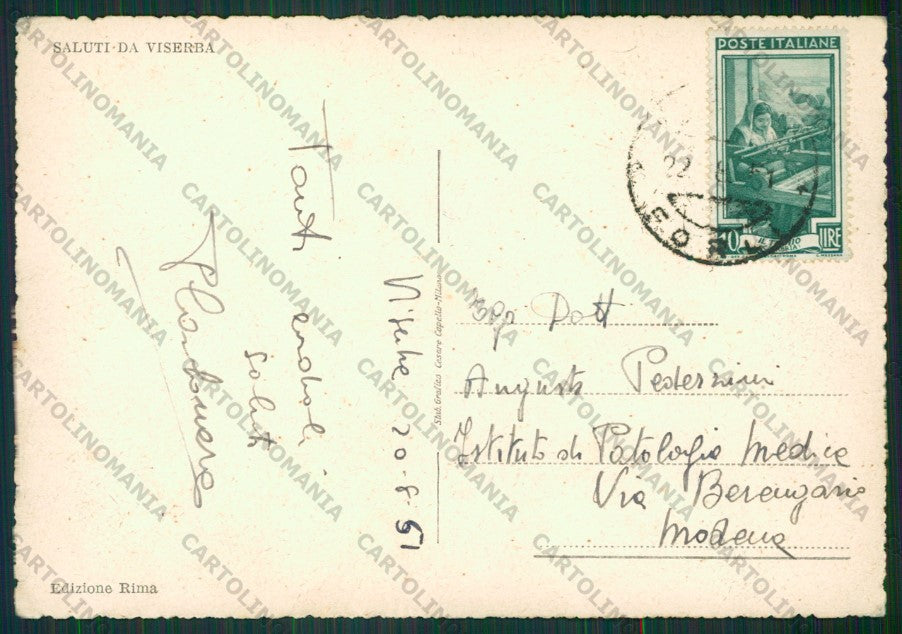 SALUTI DA VISERBA
POSTE ITALIANE
LIRE
Tanti cordiali
saluti
Viserba 20-8-51
Stab. Grafico Cesare Capello - Milano
Egr Dott
Augusto Pederzini
Istituto di Patologia Medica
Via Berengario
Modena
Edizione Rima
CARTOLINOMANIA